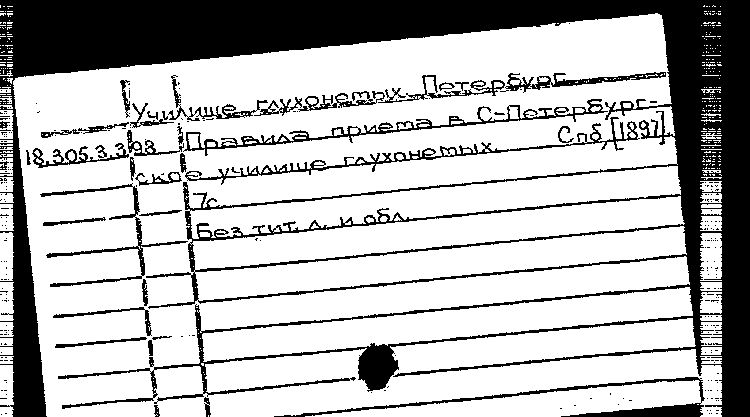 Училище глухонемых. Петербург
18.305.3.398 Правила приема в С-Петербург-
ское училище глухонемых. Спб, [1897].
7с.
Без тит. л. и обл.